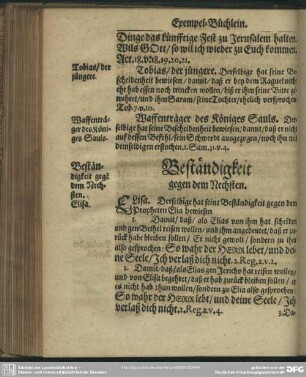 Exempel-Büchlein.
Dinge das künfftige Fest zu Jerusalem halten.
Wils GOtt / so wil ich wieder zu Euch kommen.
Act. 18. v. 18. 19. 20. 21.
Tobias / der jüngere.
Tobias / der jüngere. Derselbige hat seine Be
scheidenheit bewiesen / damit / daß er bey dem Raguel nicht
eht hab essen noch trincken wollen / biß er ihm seine Bitte ge
währet / und ihm Saram / seine Tochter / ehelich versprochen
Tob. 7. v. 10.
Waffenträ-
ger des Köni-
ges Sauls.
Waffenträger des Königes Sauls. De-
selbige hat seine Bescheidenheit bewiesen / damit / daß er nicht
auf dessen Befehl / sein Schwerdt ausgezogen / noch ihn mit
demselbigen erstochen. 1. Sam. 31. v. 4.
Bestän-
digkeit gegē
dem Nech-
sten.
Elisa.
Beständigkeit
gegen dem Nechsten.
ELisa. Derselbige hat seine Beständigkeit gegen den
Propheten Elia bewiesen
1. Damit / daß / als Elias von ihm hat scheiden
und gen Bethel reisen wollen / und ihm angedeutet / daß er zu
rück habe bleiben sollen / Er nicht gewolt / sondern zu ihm
also gesprochen: So wahr der HErr lebet / und dei
ne Seele / Ich verlaß dich nicht. 2. Reg. 2. v. 2.
2. Damit / daß / als Elias gen Jericho hat reisen wollen
und von Elisa begehret / daß er hab zurück bleiben sollen / er
es nicht hab thun wollen / sondern zu Elia also gesprochen
So wahr der HErr lebt / und deine Seele / Ich
verlaß dich nicht. 2. Reg. 2. v. 4.
3. Da-